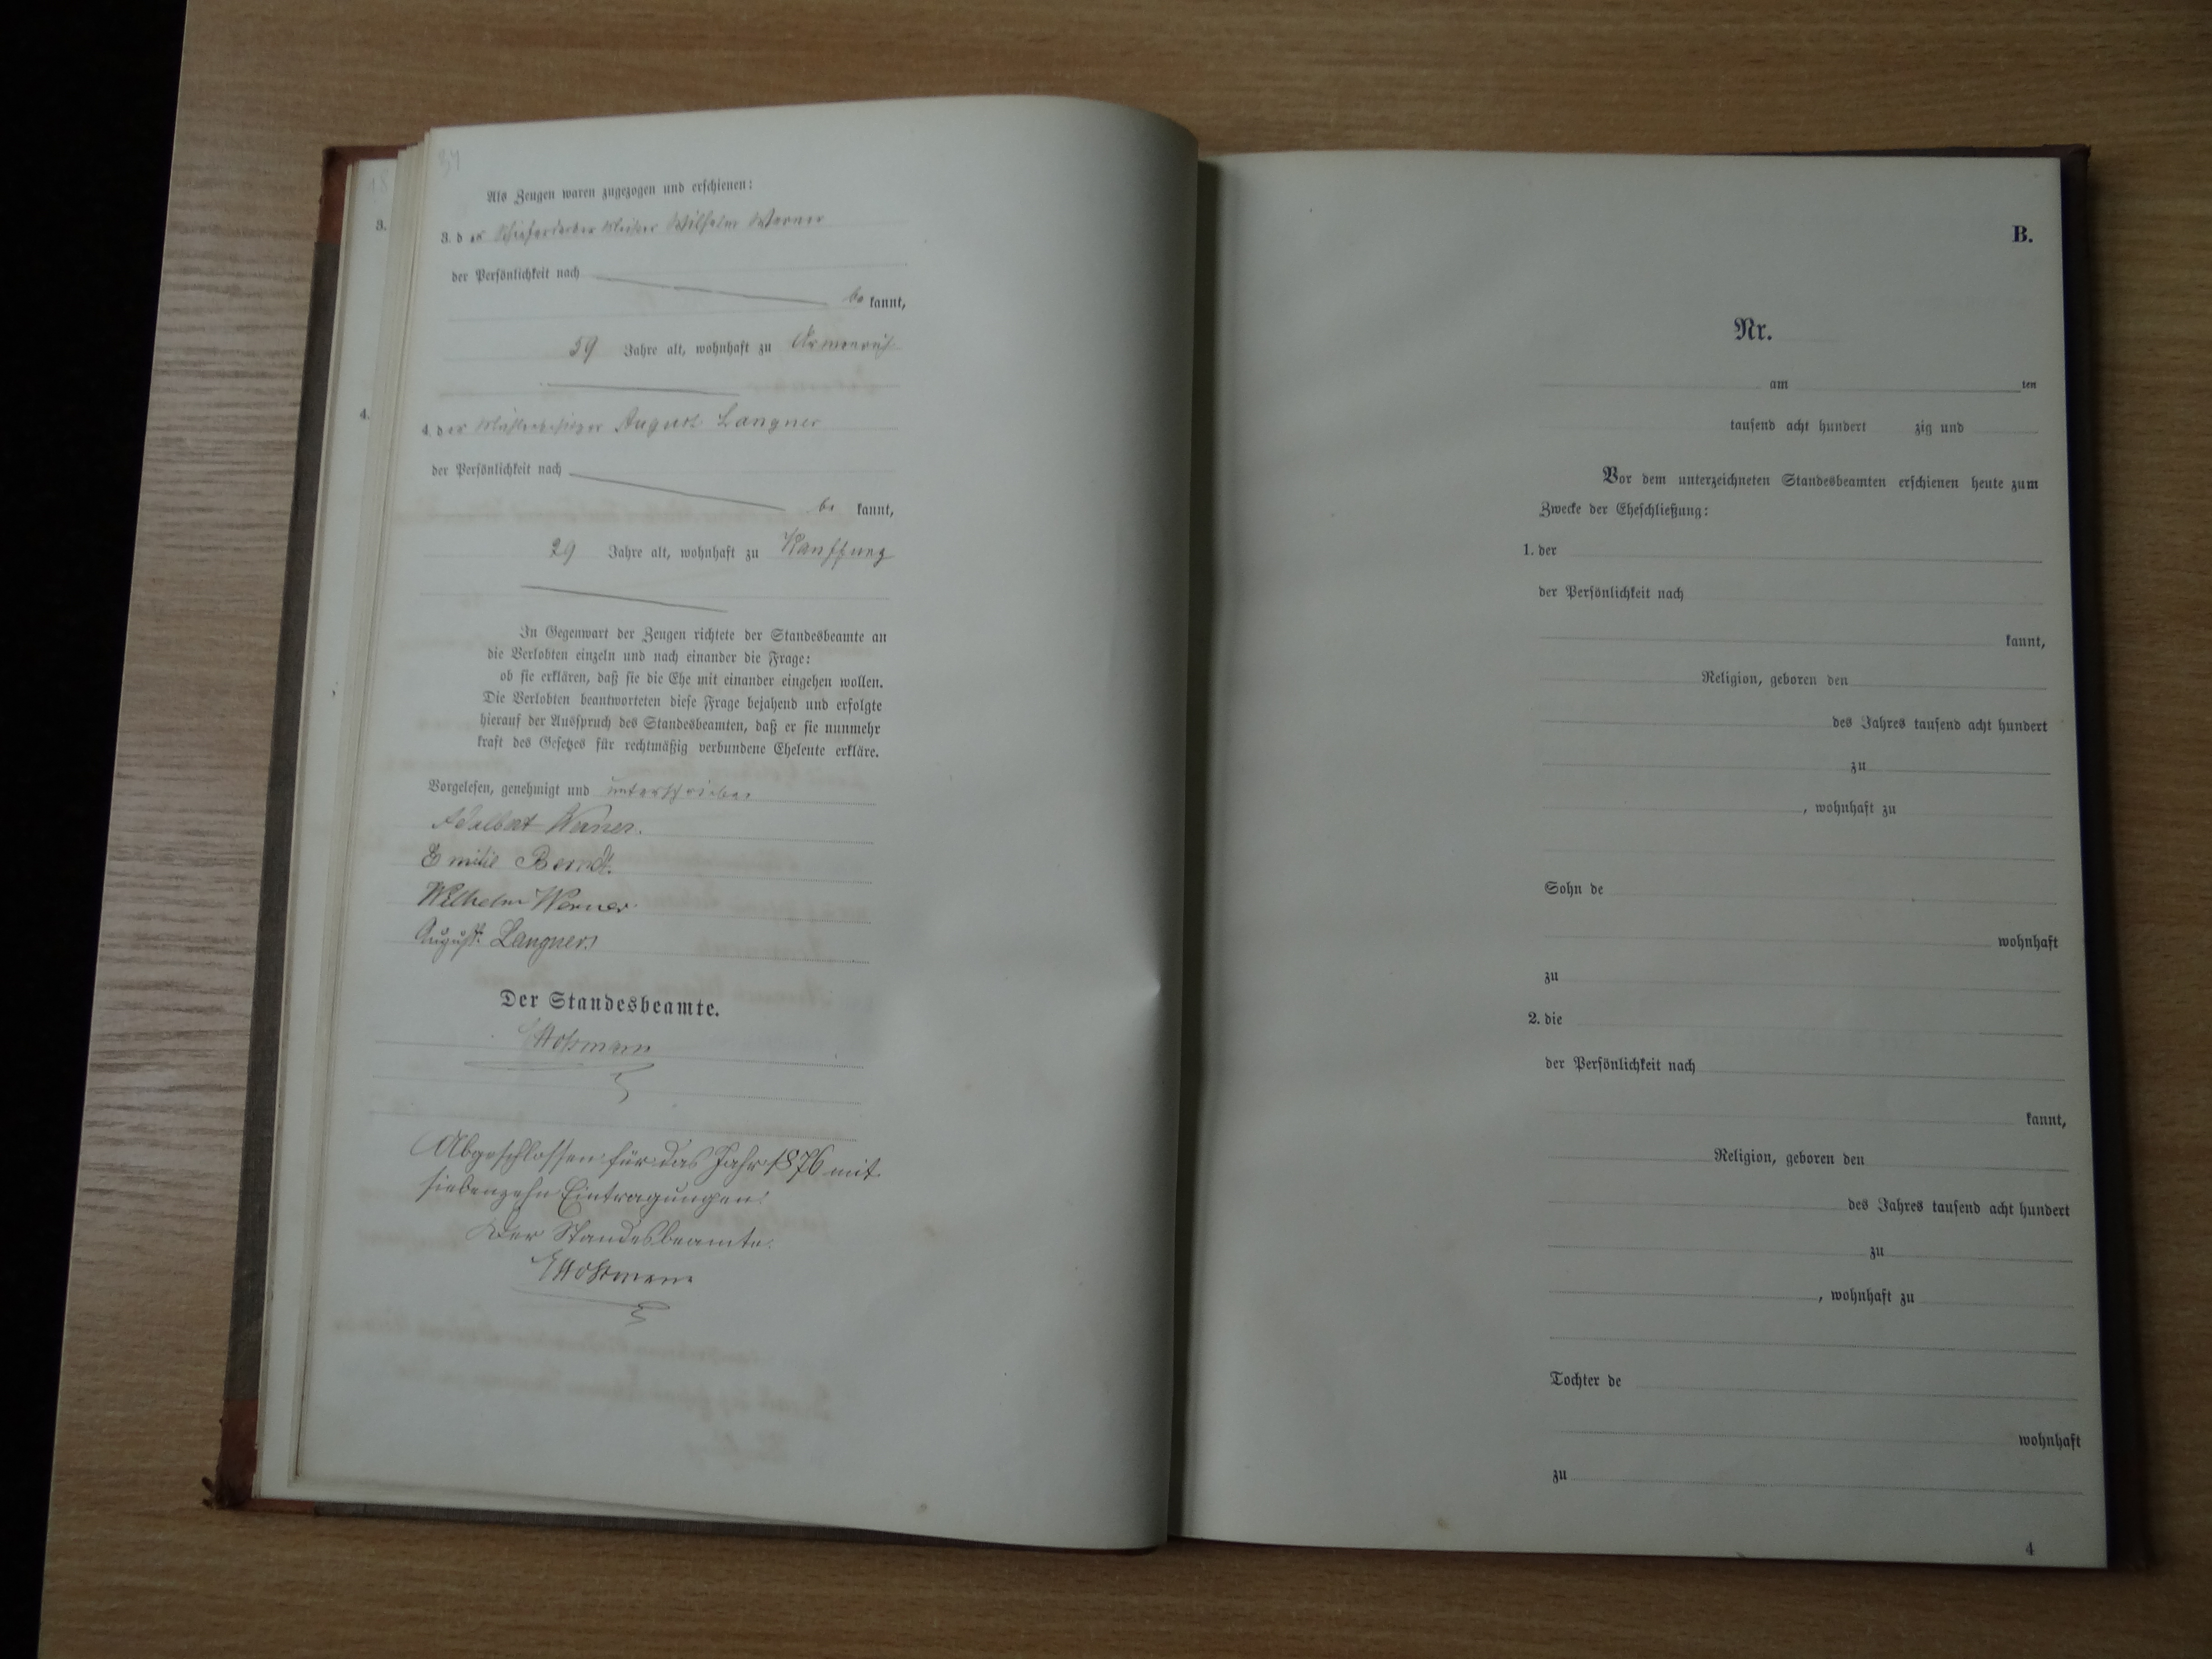 34
18
3.
4.
Als Zeugen waren zugezogen und erschienen:
3. der Schieferdecker Meister Wilhelm Werner
der Persönlichkeit nach
be kannt,
39 Jahre alt, wohnhaft zu
4. der Mühlenbesitzer August Langner
der Persönlichkeit nach
be kannt,
29 Jahre alt, wohnhaft zu Kauffung
In Gegenwart der Zeugen richtete der Standesbeamte an
die Verlobten einzeln und nach einander die Frage:
ob sie erklären, daß sie die Ehe mit einander eingehen wollen.
Die Verlobten beantworteten diese Frage bejahend und erfolgte
hierauf der Ausspruch des Standesbeamten, daß er sie nunmehr
kraft des Gesetzes für rechtmäßig verbundene Eheleute erkläre.
Vorgelesen, genehmigt und unterschrieben
Adalbert Werner.
Emilie Berndt.
Wilhelm Werner
August Langner.
Der Standesbeamte.
Abgeschlossen für das Jahr 1876 mit
siebenzehn Eintragungen.
Der Standesbeamte.
B.
Nr.
am ten
tausend acht hundert zig und
Vor dem unterzeichneten Standesbeamten erschienen heute zum
Zwecke der Eheschließung:
1. der
der Persönlichkeit nach
kannt,
Religion, geboren den
des Jahres tausend acht hundert
zu
, wohnhaft zu
Sohn de
wohnhaft
zu
2. die
der Persönlichkeit nach
kannt,
Religion, geboren den
des Jahres tausend acht hundert
zu
, wohnhaft zu
Tochter de
wohnhaft
zu
4